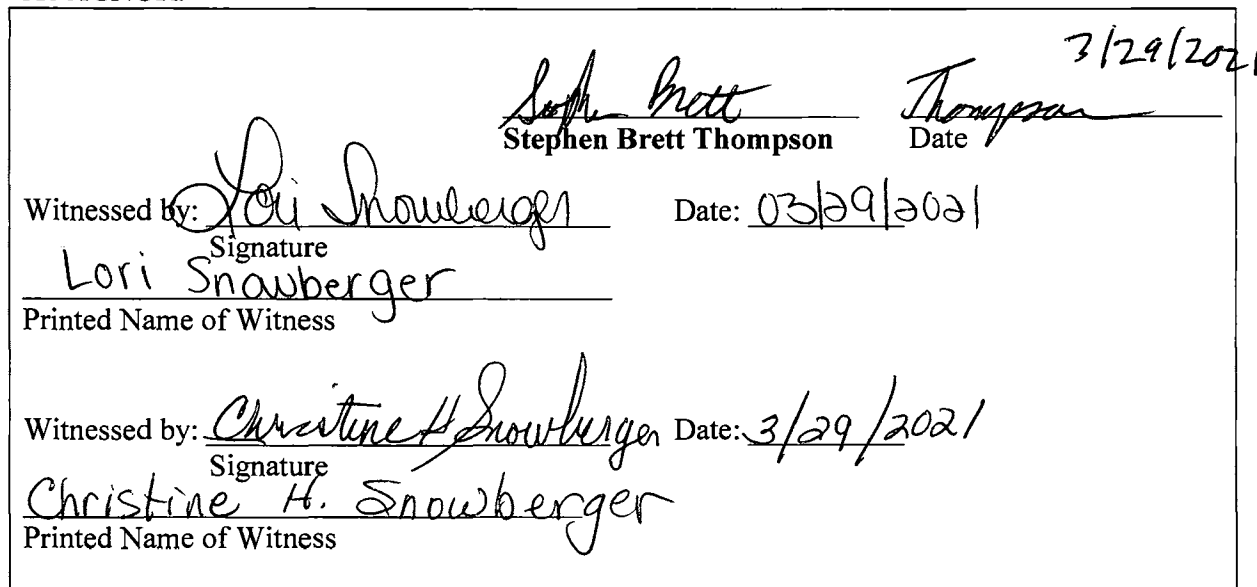 3/29/2021
Stephen Brett Thompson
Stephen Brett Thompson Date
Witnessed by: Lori Snowberger Date: 03/29/2021
Signature
Lori Snowberger
Printed Name of Witness
Witnessed by: Christine H Snowberger Date: 3/29/2021
Signature
Christine H. Snowberger
Printed Name of Witness